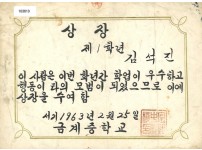 상장
제1학년
김석진
이 사람은 이번 학년간 학업이 우수하고
행동이 타의 모범이 되었으므로 이에
상장을 수여함
서기 1963년 2월 25일
금계중학교